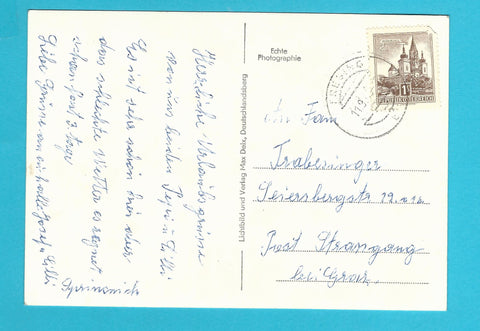 Herzliche Urlaubsgrüsse
von uns beiden Pepi u. Cilli
Es ist sehr schön hier aber
das schlechte Wetter es regnet
schon fast 3 Tage
Liebe Grüsse an alle Josef u. Cilli
Echte
Photographie
Lichtbild und Verlag Max Deix, Deutschlandsberg
REPUBLIK ÖSTERREICH
An Fam
Trabesinger
Seiersbergstr 19.
Post Strassgang
bei Graz.